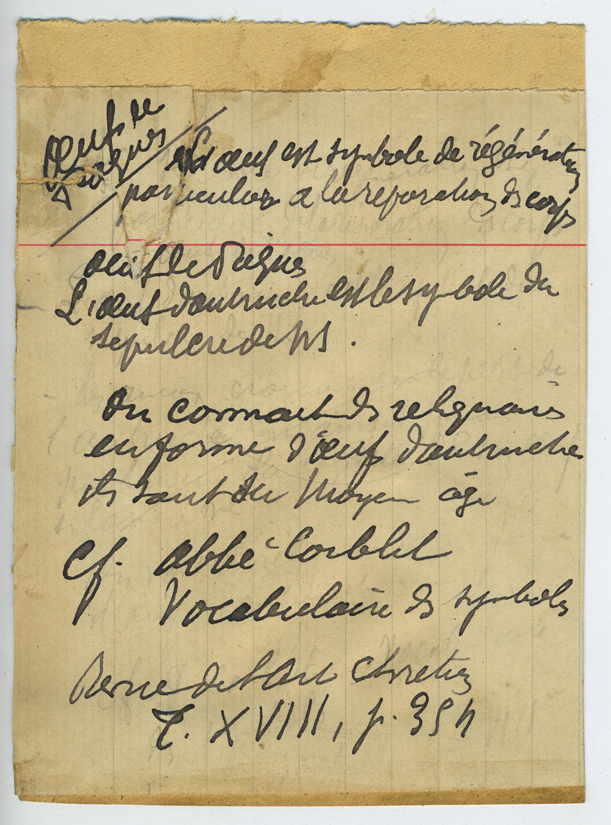 Œufs de
Pâques
L'œuf est symbole de régénération
particulier à la réparation des corps
œufs de Pâques
L'œuf d'autruche est le symbole du
sépulcre de
On connaît des reliquaires
en forme d'œuf d'autruche
ils sont du Moyen âge
Cf. abbé Corblet
Vocabulaire des symboles
Revue de l'Art chrétien
T. XVIII, p. 354